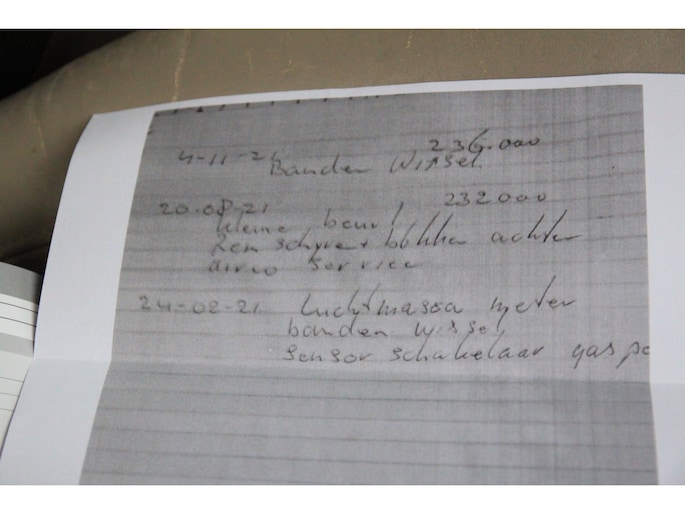 4-11-21 236.000
Banden Wissel
20-08-21 232000
kleine beurt
Rem schyve + blokken achter
airco service
24-02-21 Luchtmassa meter
banden wissel
sensor schakelaar gas pe